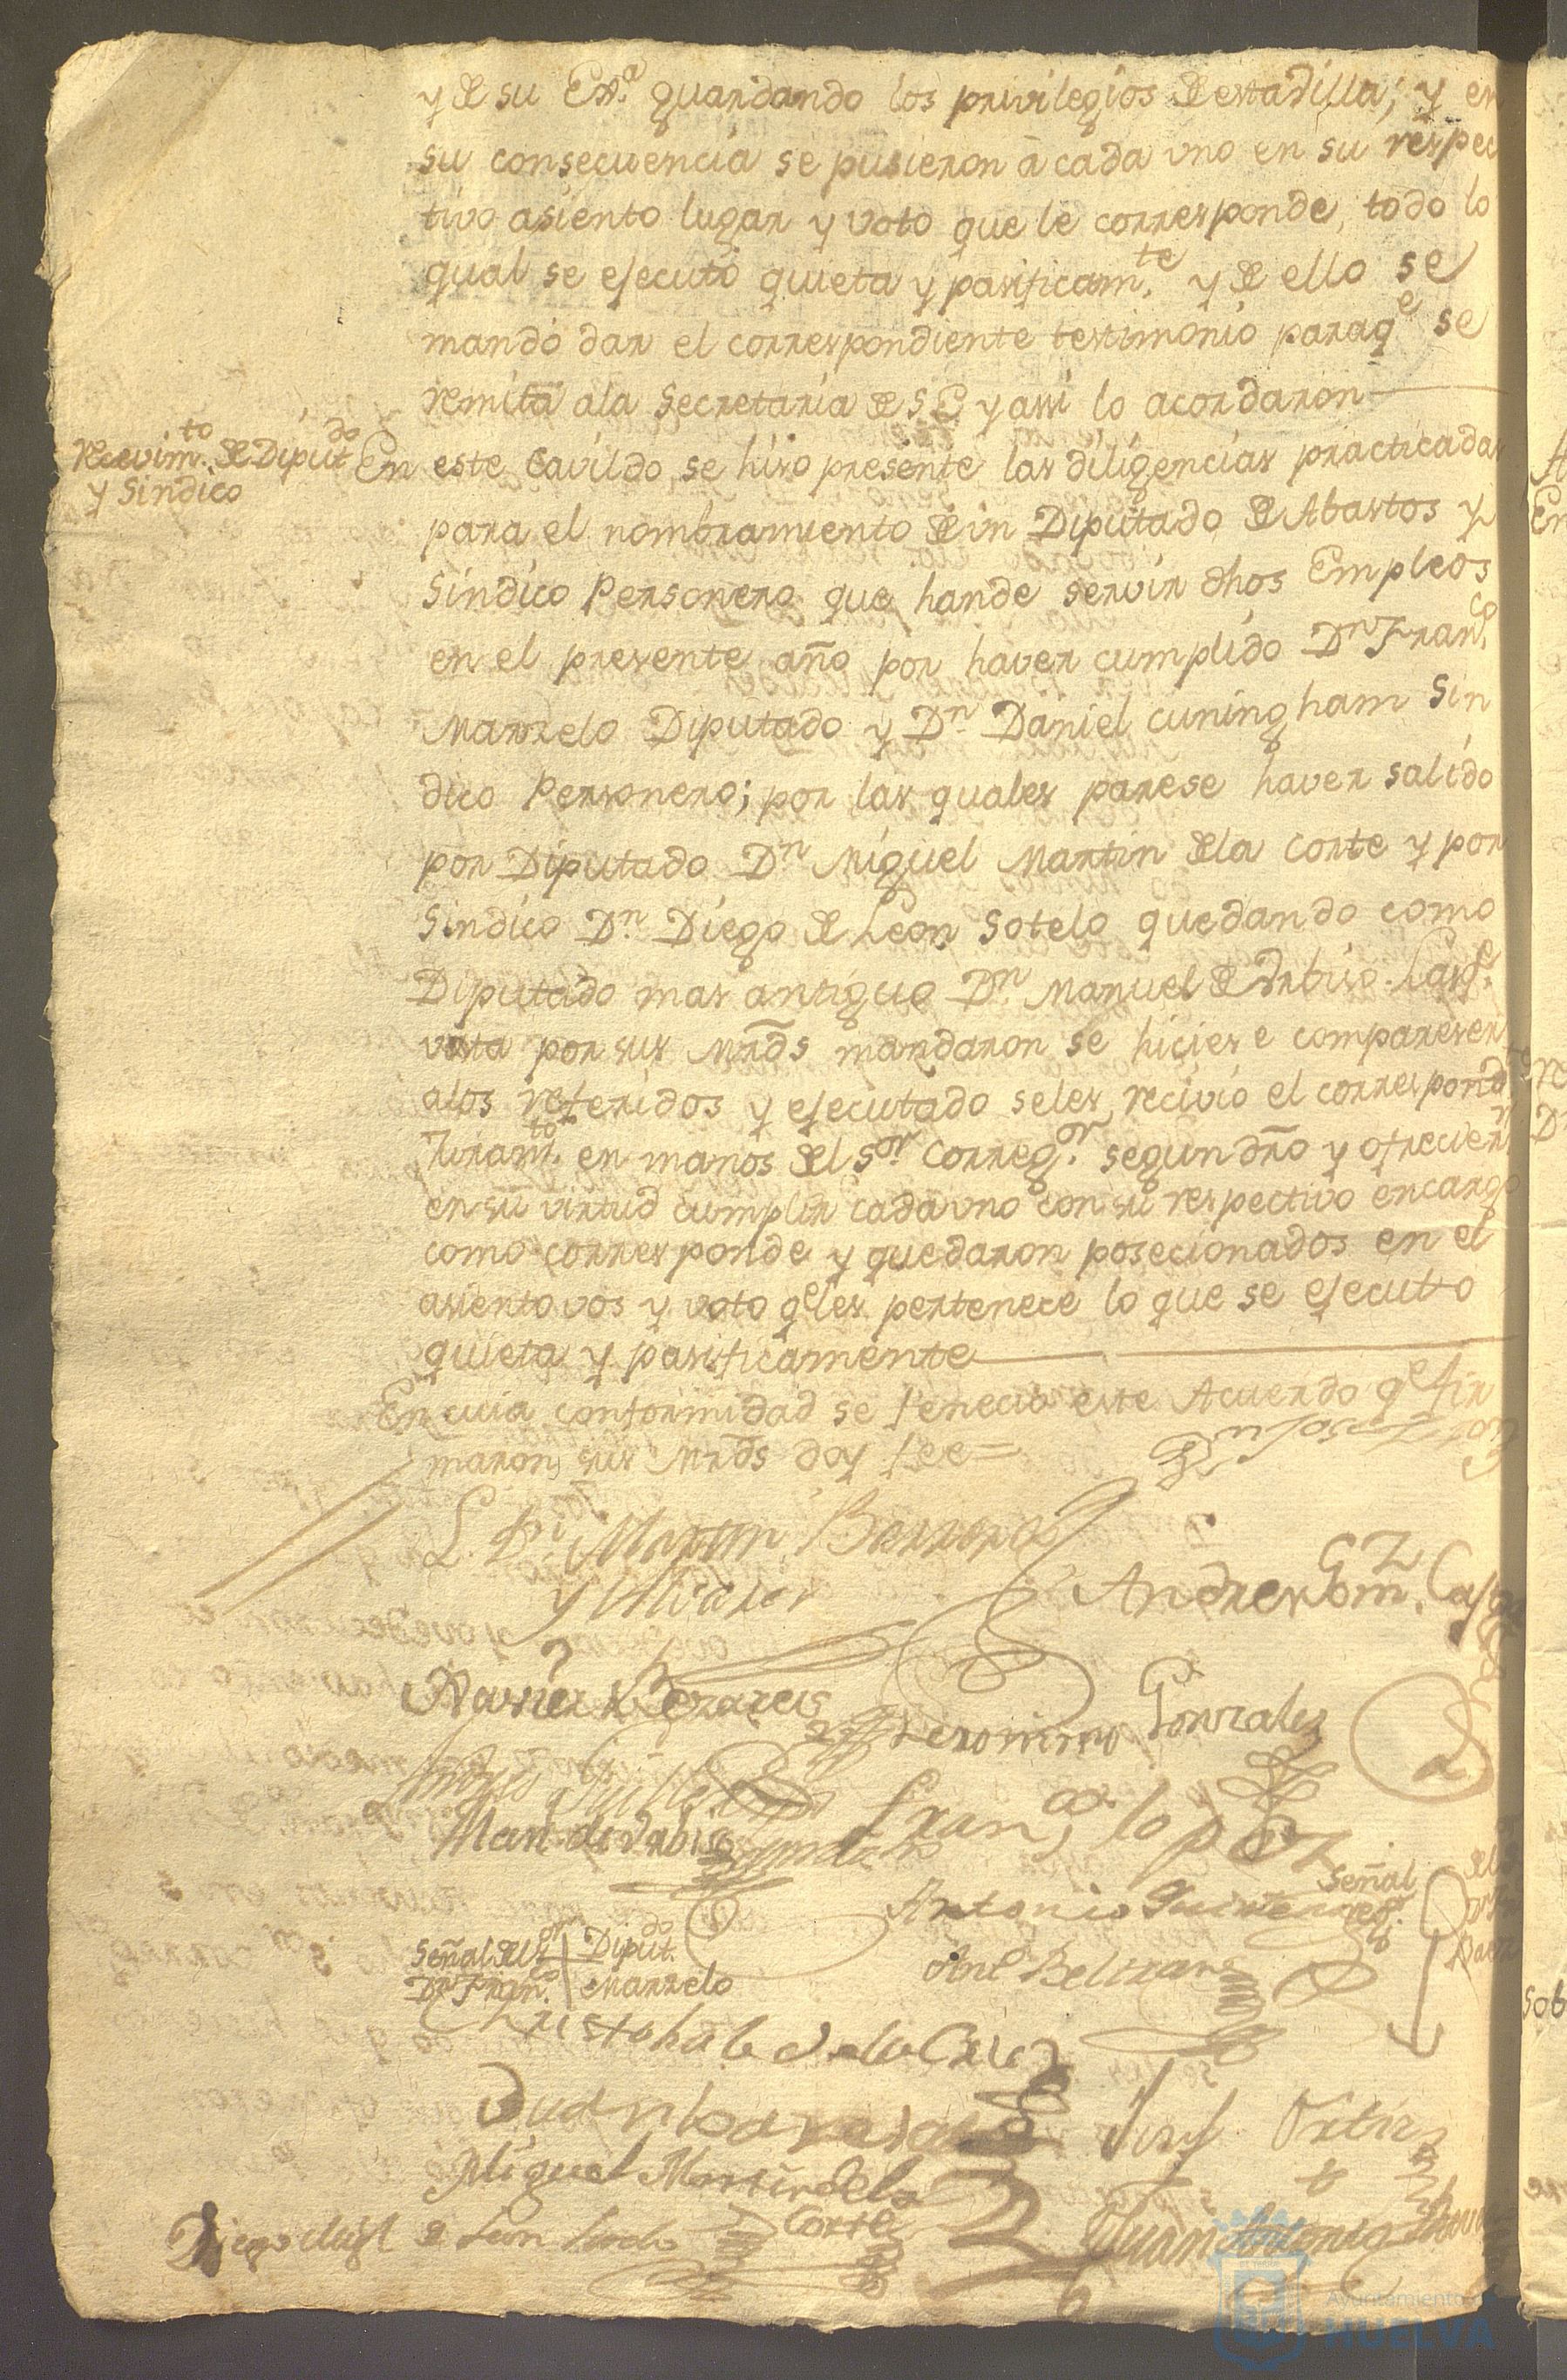 y de su Exª. guardando los privilegios de esta Villa; y en
su consecuencia se pusieron à cada uno en su respec
tivo asiento lugar y voto que le corresponde, todo lo
qual se ejecutó quieta y pasificamte. y de ello se
mandó dar el correspondiente testimonio paraqe se
remita ala Secretaría de S E y assi lo acordaron
Recevimto. de Diputdo
y Sindico
En este Cavildo se hiso presente las diligencias practicadas
para el nombramiento de un Diputado de Abastos y
Sindico Personero que hande servir dhos Empleos
en el presente año por haver cumplido Dn Franco.
Marrelo Diputado y Dn Daniel cuningham Sin
dico Personero; por las quales parese haver salido
por Diputado Dn Miguel Martin dela Corte y por
Sindico Dn. Diego de Leon Sotelo quedando como
Diputado mas antiguo Dn. Manuel de
vista por sus Mrds mandaron se hiciese compareser
alos referidos y ejecutado seles recivió el correspond
Juramto. en manos del Sor. Corregor. segun dro y ofrecier
en su virtud cumplir cada uno con su respectivo encargo
como corresponde y quedaron posecionados en el
asiento vos y voto qe les pertenece lo que se ejecutó
quieta y pasificamente
En cuia conformidad se fenecio este Acuerdo qe fir
maron sus Mrds doy fee=
L. Dn Martin Barrera
y
Andres Gomz.
Xavier
Geronimo Gonzales
Man. de
Franco. lopez
Antonio Quintero
Señal
Señal del Sor Diputdo.
Dn Franco. Marrelo
Ant Beltran
Christobal de la Cruz
Juan
Josf Ortiz
Miguel Martin dela
Corte
Diego de Leon Sotelo
Juan Antonio
Ayuntamiento
HUELVA